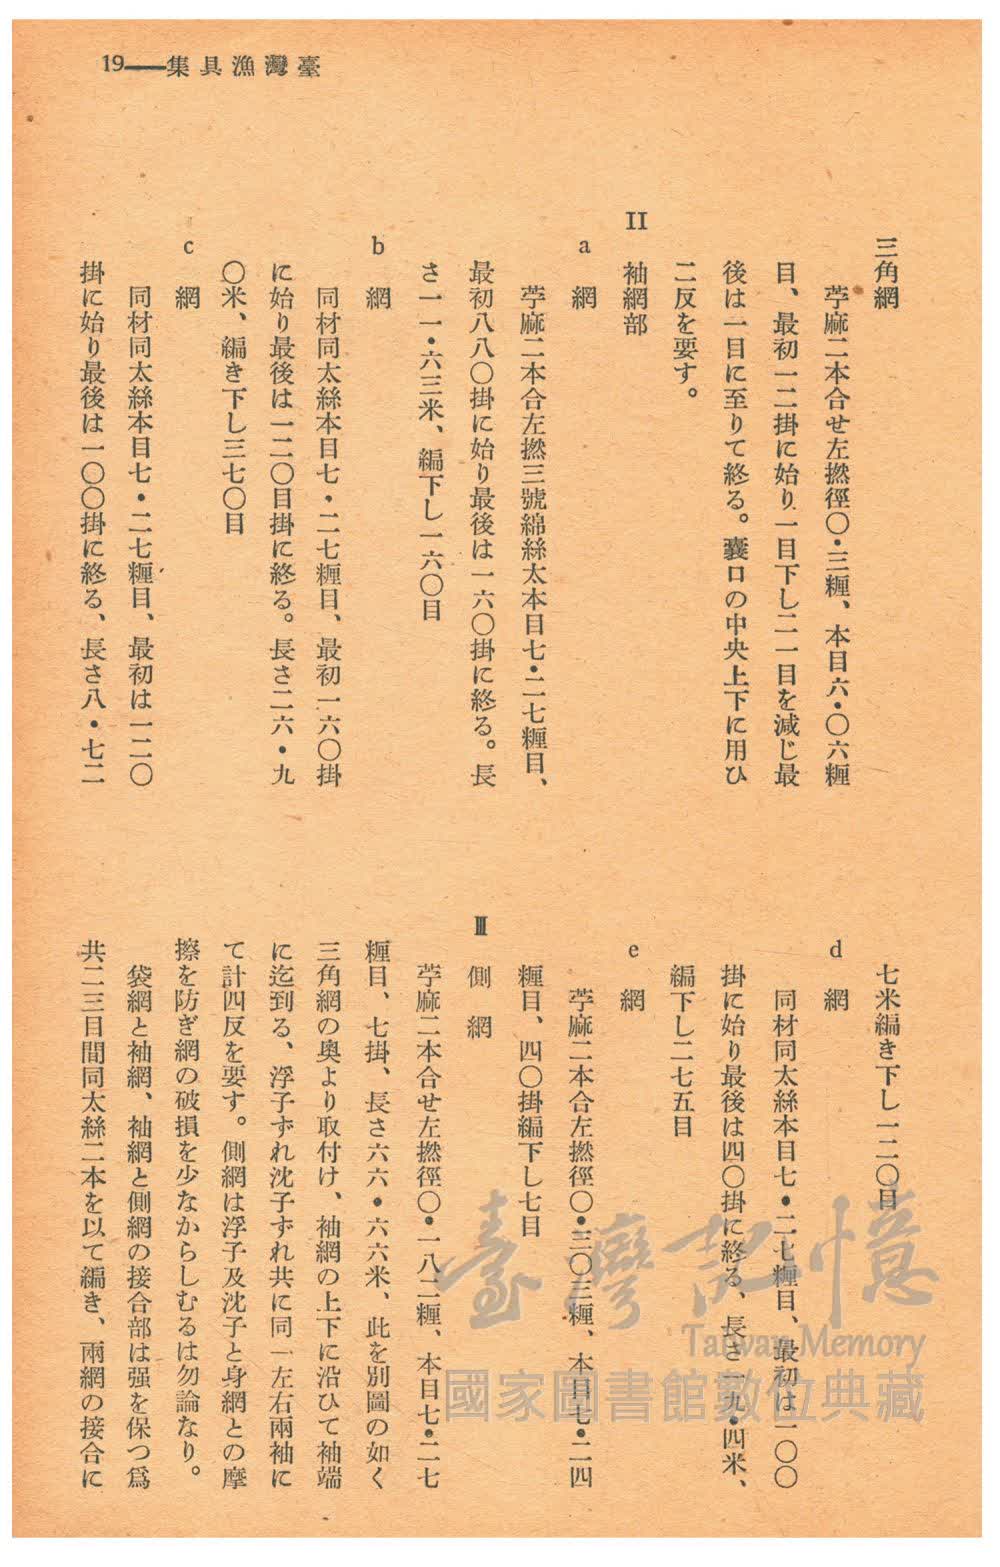 臺灣漁具集——19
三角網
苧麻二本合せ左撚徑〇・三糎、本目六・〇六糎
目、最初一二掛に始り一目下し二一目を減じ最
後は一目に至りて終る。囊口の中央上下に用ひ
二反を要す。
II 袖網部
a 網
苧麻二本合左撚三號綿絲太本目七・二七糎目、
最初八八〇掛に始り最後は一六〇掛に終る。長
さ一一・六三米、編下し一六〇目
b 網
同材同太絲本目七・二七糎目、最初一六〇掛
に始り最後は一二〇目掛に終る。長さ二六・九
〇米、編き下し三七〇目
c 網
同材同太絲本目七・二七糎目、最初は一二〇
掛に始り最後は一〇〇掛に終る、長さ八・七二
七米編き下し一二〇目
d 網
同材同太絲本目七・二七糎目、最初は一〇〇
掛に始り最後は四〇掛に終る、長さ一九・四米、
編下し二七五目
e 網
苧麻二本合左撚徑〇・三〇三糎、本目七・二四
糎目、四〇掛編下し七目
III 側網
苧麻二本合せ左撚徑〇・一八二糎、本目七・二七
糎目、七掛、長さ六六・六六米、此を別圖の如く
三角網の奥より取付け、袖網の上下に沿ひて袖端
に迄到る、浮子ずれ沈子ずれ共に同一左右兩袖に
て計四反を要す。側網は浮子及沈子と身網との摩
擦を防ぎ網の破損を少なからしむるは勿論なり。
袋網と袖網、袖網と側網の接合部は强を保つ爲
共二三目間同太絲二本を以て編き、兩網の接合に
臺灣記憶
Taiwan Memory
國家圖書館數位典藏